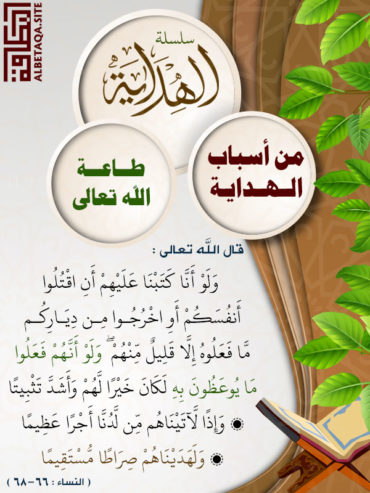 البطاقة
ALBETAQA.SITE
سلسلة
الهداية
من أسباب
الهداية
طاعة
الله تعالى
قال الله تعالى :
وَلَوْ أَنَّا كَتَبْنَا عَلَيْهِمْ أَنِ اقْتُلُوا
أَنفُسَكُمْ أَوِ اخْرُجُوا مِن دِيَارِكُم
مَّا فَعَلُوهُ إِلَّا قَلِيلٌ مِّنْهُمْ ۖ وَلَوْ أَنَّهُمْ فَعَلُوا
مَا يُوعَظُونَ بِهِ لَكَانَ خَيْرًا لَّهُمْ وَأَشَدَّ تَثْبِيتًا
۞ وَإِذًا لَّآتَيْنَاهُم مِّن لَّدُنَّا أَجْرًا عَظِيمًا
۞ وَلَهَدَيْنَاهُمْ صِرَاطًا مُّسْتَقِيمًا
( النساء : ٦٦-٦٨ )